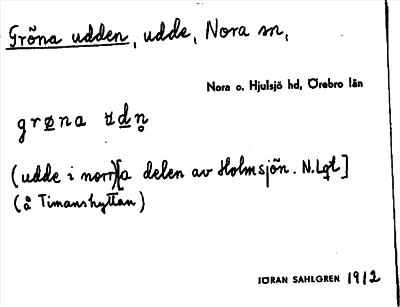 Gröna udden, udde, Nora sn,
Nora o. Hjulsjö hd, Örebro län
grøna ud̲n̥
(udde i norr)[a delen av Holmsjön. N.Lgl]
(å Timanshyttan)
JÖRAN SAHLGREN 1912